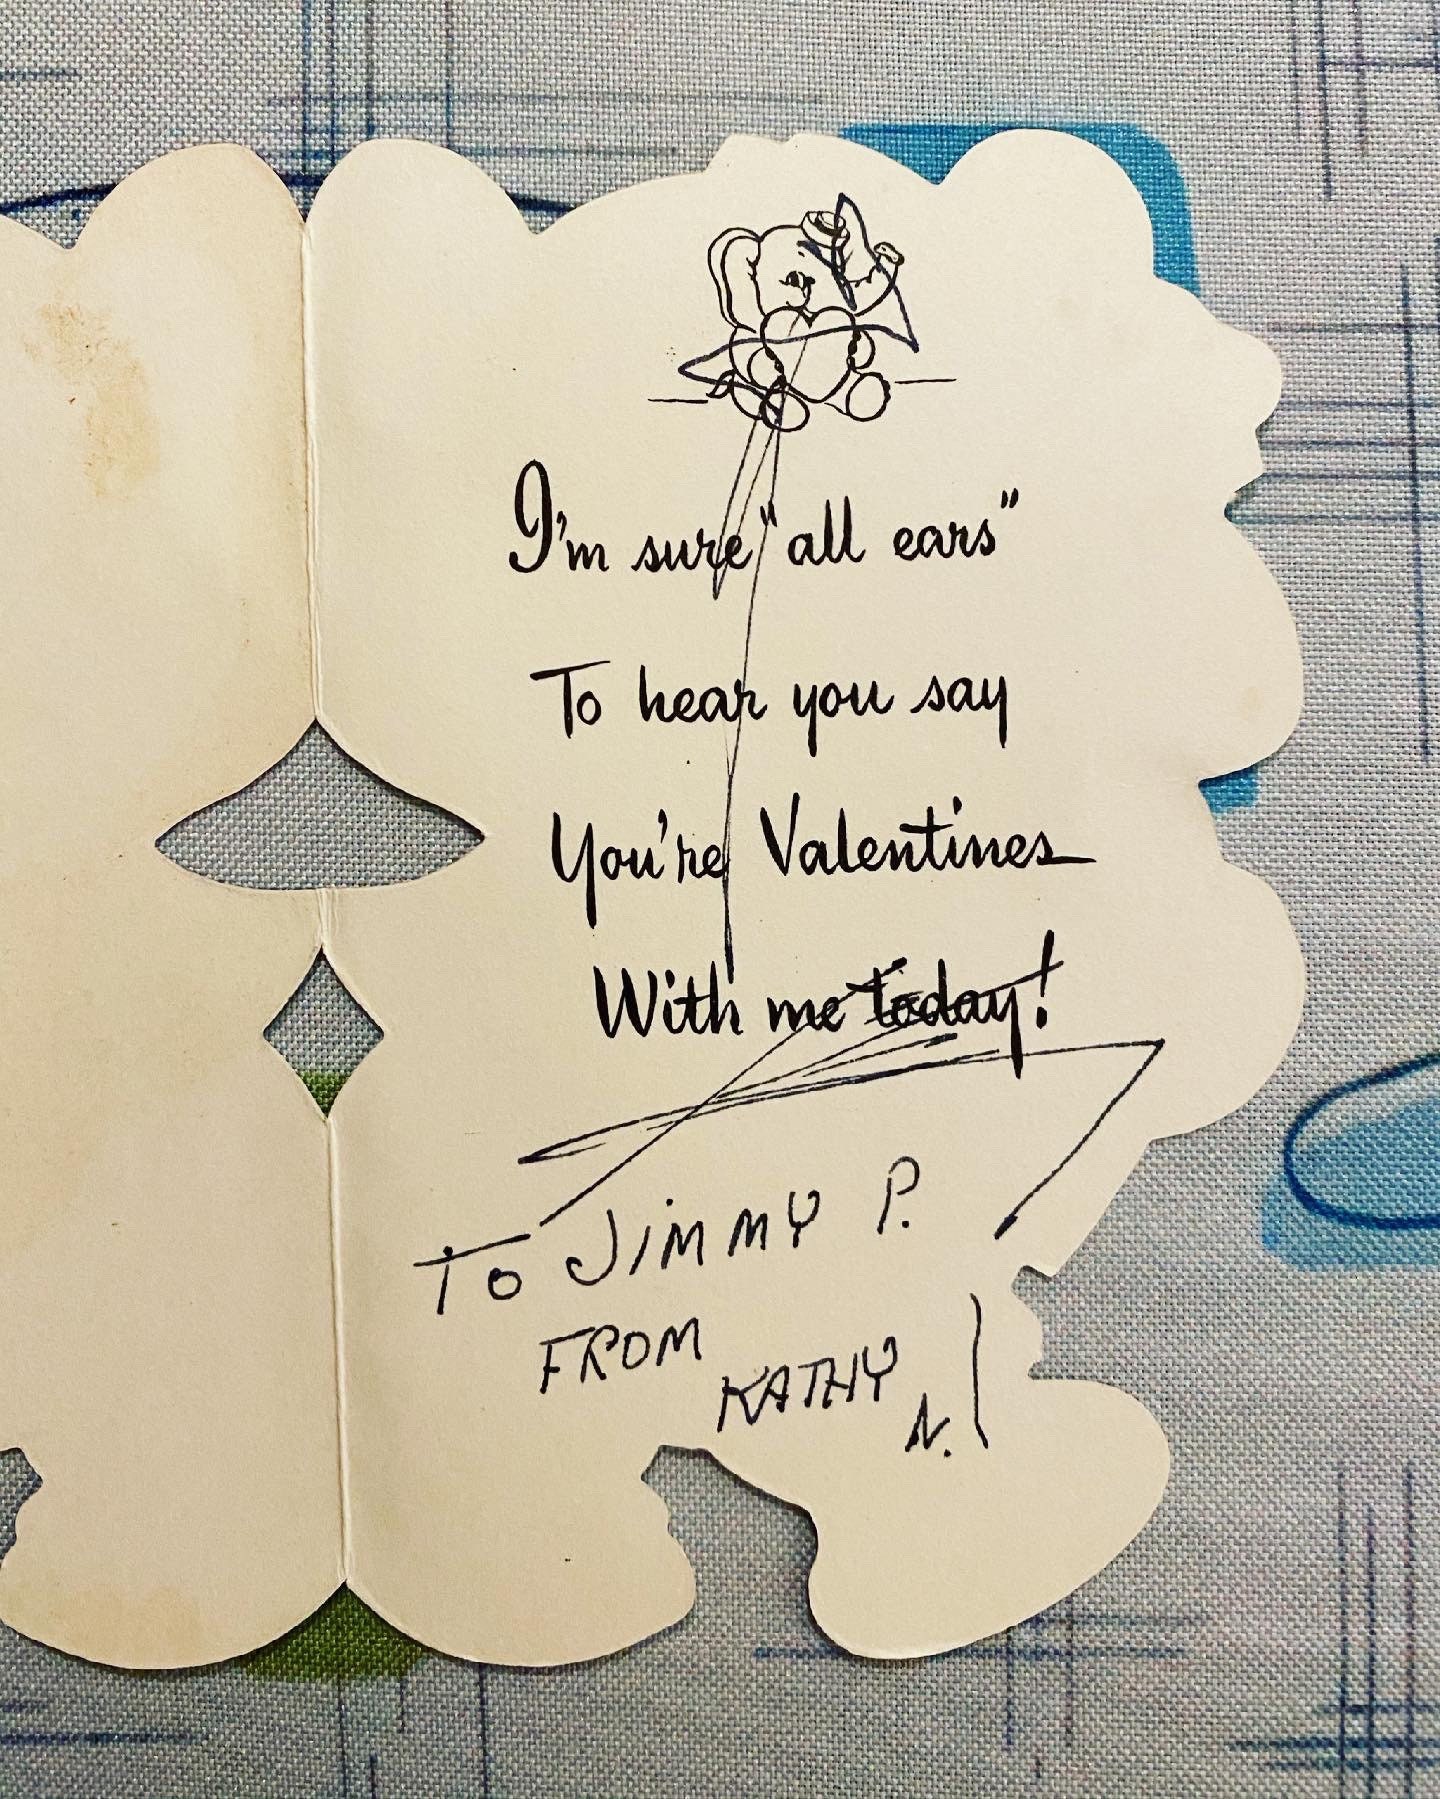 I'm sure "all ears"
To hear you say
You're Valentines
With me today!
To JiMMY P.
FROM
KATHY
N.